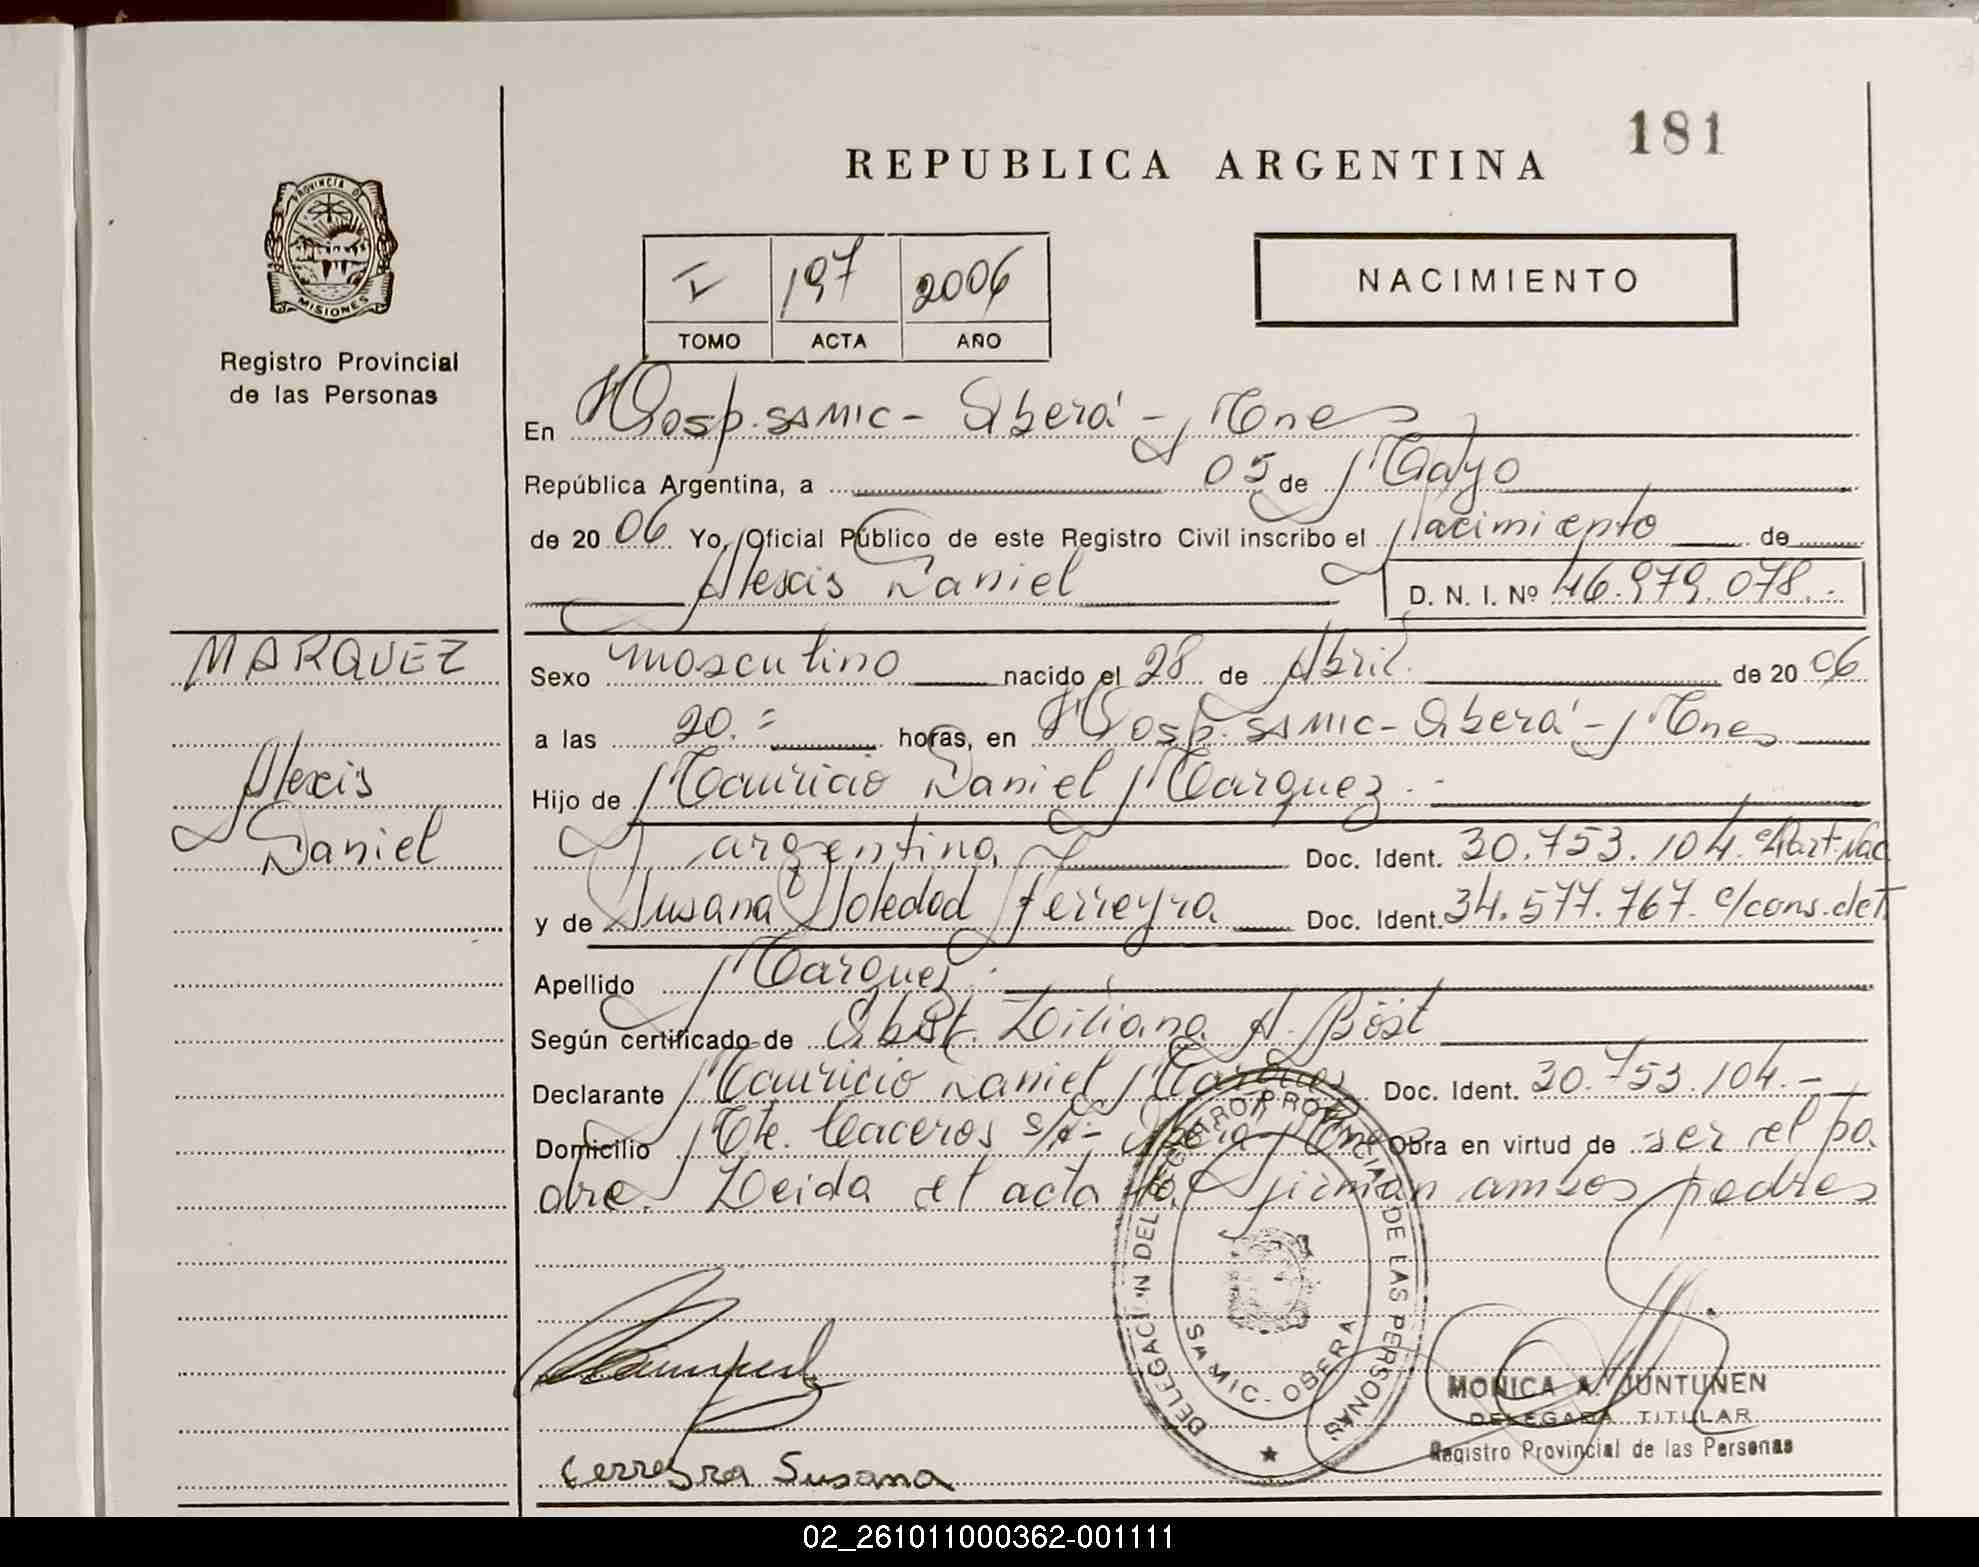 181
REPUBLICA ARGENTINA
PROVINCIA DE
MISIONES
Registro Provincial
de las Personas
NACIMIENTO
I 197 2006
TOMO ACTA AÑO
En Hosp. SAMIC - Oberá - Mnes
República Argentina, a 05 de Mayo
de 2006 Yo, Oficial Público de este Registro Civil inscribo el Nacimiento de
Alexis Daniel D. N. I. Nº 46.979.078.-
MARQUEZ
Alexis
Daniel
Sexo masculino nacido el 28 de Abril. de 2006
a las 20.= horas, en Hosp. SAMIC - Oberá - Mnes
Hijo de Mauricio Daniel Marquez.-
argentina Doc. Ident. 30.753.104. c/Part. Nac
y de Susana Soledad Ferreyra Doc. Ident. 34.577.767. c/cons. del
Apellido Marquez.
Según certificado de Obst. Liliana A. Böst
Declarante Mauricio Daniel Marquez Doc. Ident. 30.753.104.-
Domicilio Tte. Caceros s/n- Oberá Mnes Obra en virtud de ser el pa
dre. Leida el acta la firman ambos padres
DELEGACION DEL REGISTRO PROVINCIAL DE LAS PERSONAS
SAMIC - OBERA
MONICA A. JUNTUNEN
DELEGADA TITULAR
Registro Provincial de las Personas
Ferreyra Susana
02_261011000362-001111